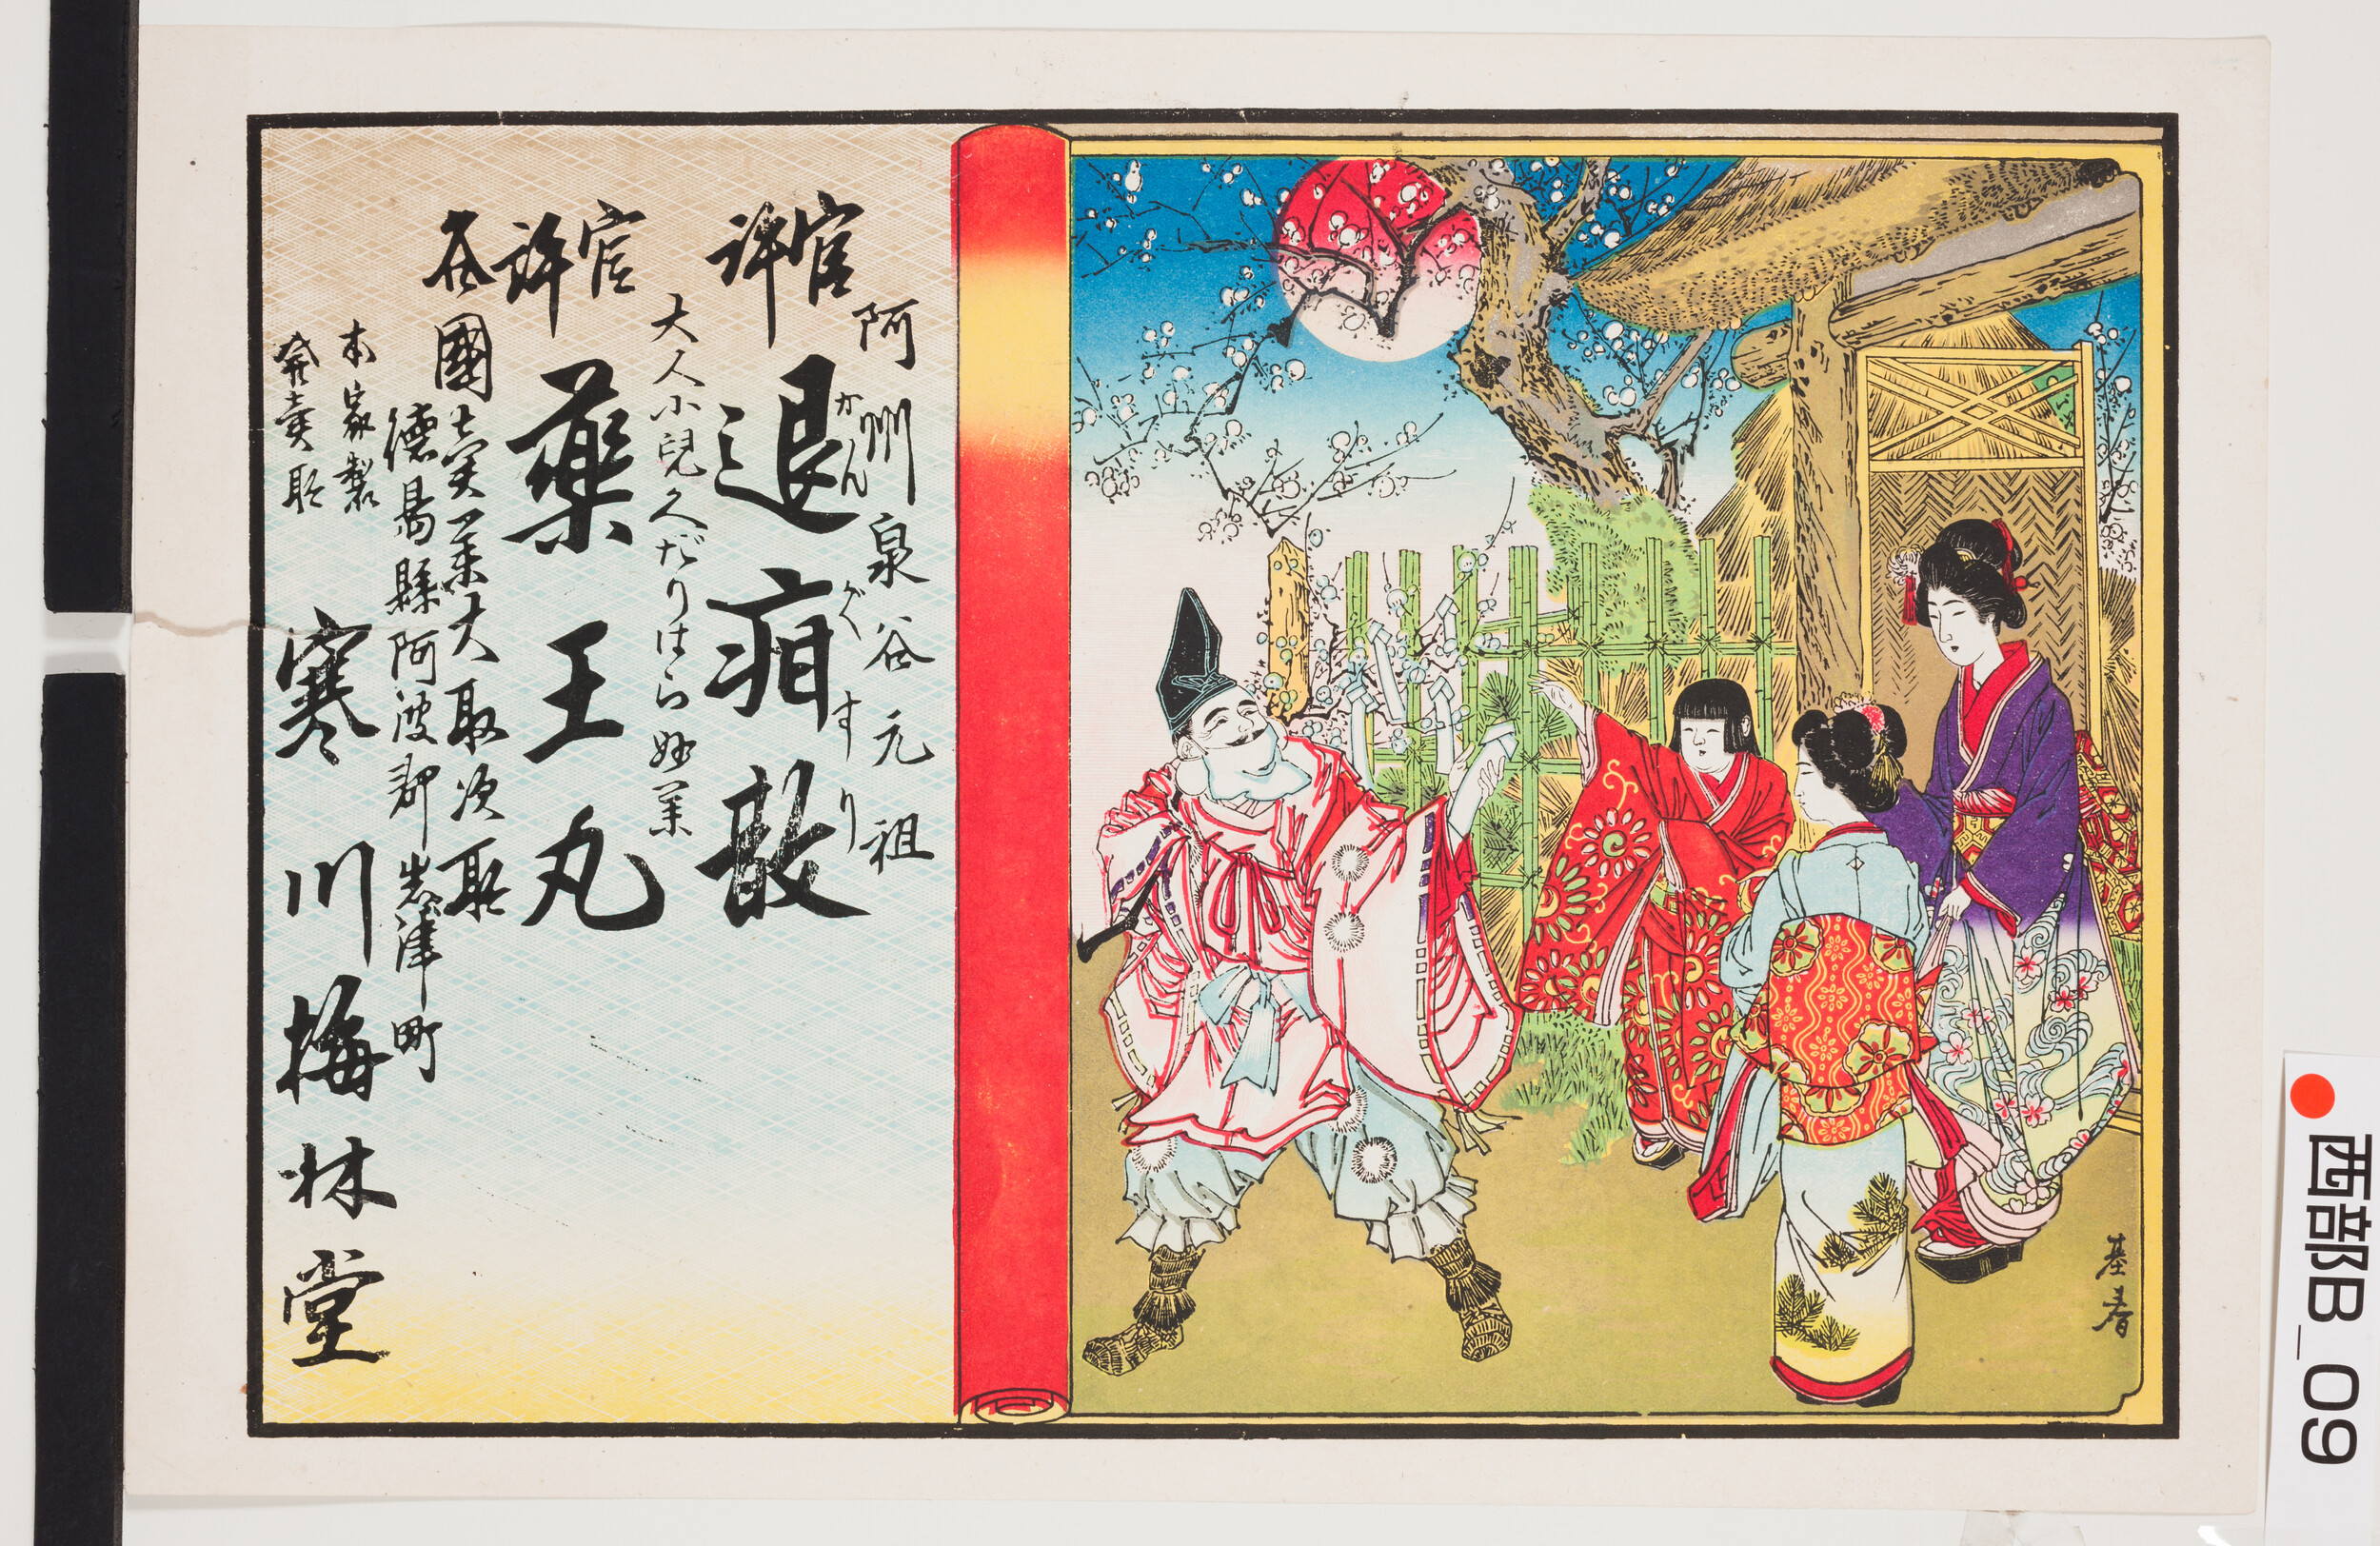 基春
阿州泉谷元祖
官許
退疳散
かんぐすり
大人小児久だりはら妙薬
官許
薬王丸
各國
売薬大取次所
徳島縣阿波郡岩津町
本家製
発賣所
寒川梅林堂
西部B_09